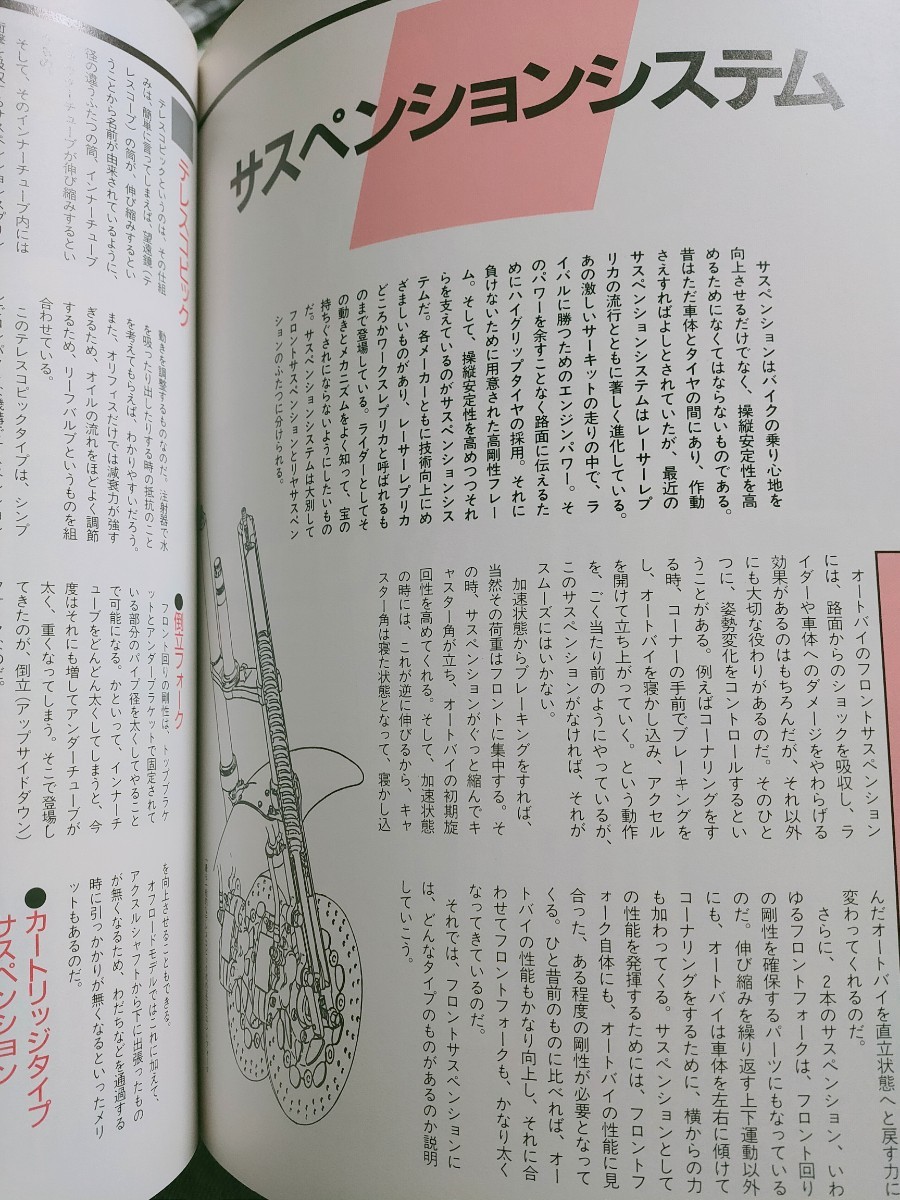 サスペンションシステム
サスペンションはバイクの乗り心地を
向上させるだけでなく、操縦安定性を高
めるためになくてはならないものである。
昔はただ車体とタイヤの間にあり、作動
さえすればよしとされていたが、最近の
サスペンションシステムはレーサーレプ
リカの流行とともに著しく進化している。
あの激しいサーキットの走りの中で、ラ
イバルに勝つためのエンジンパワー。そ
のパワーを余すことなく路面に伝えるた
めにハイグリップタイヤの採用。それに
負けないために用意された高剛性フレー
ム。そして、操縦安定性を高めつつそれ
らを支えているのがサスペンションシス
テムだ。各メーカーともに技術向上にめ
ざましいものがあり、レーサーレプリカ
どころかワークスレプリカと呼ばれるも
のまで登場している。ライダーとしてそ
の動きとメカニズムをよく知って、宝の
持ちぐされにならないようにしたいもの
だ。サスペンションシステムは大別して
フロントサスペンションとリヤサスペン
ションのふたつに分けられる。
オートバイのフロントサスペンション
には、路面からのショックを吸収し、ラ
イダーや車体へのダメージをやわらげる
効果があるのはもちろんだが、それ以外
にも大切な役わりがあるのだ。そのひと
つに、姿勢変化をコントロールするとい
うことがある。例えばコーナリングをす
る時、コーナーの手前でブレーキングを
し、オートバイを寝かし込み、アクセル
を開けて立ち上がっていく。という動作
を、ごく当たり前のようにやっているが、
このサスペンションがなければ、それが
スムーズにはいかない。
加速状態からブレーキングをすれば、
当然その荷重はフロントに集中する。そ
の時、サスペンションがぐっと縮んでキ
ャスター角が立ち、オートバイの初期旋
回性を高めてくれる。そして、加速状態
の時には、これが逆に伸びるから、キャ
スター角は寝た状態となって、寝かし込
んだオートバイを直立状態へと戻す力に
変わってくれるのだ。
さらに、2本のサスペンション、いわ
ゆるフロントフォークは、フロント回り
の剛性を確保するパーツにもなっている
のだ。伸び縮みを繰り返す上下運動以外
にも、オートバイは車体を左右に傾けて
コーナリングをするために、横からの力
も加わってくる。サスペンションとして
の性能を発揮するためには、フロントフ
ォーク自体にも、オートバイの性能に見
合った、ある程度の剛性が必要となって
くる。ひと昔前のものに比べれば、オー
トバイの性能もかなり向上し、それに合
わせてフロントフォークも、かなり太く
なってきているのだ。
それでは、フロントサスペンションに
は、どんなタイプのものがあるのか説明
していこう。
テレスコピック
テレスコピックというのは、その仕組
みは簡単に言ってしまえば、望遠鏡（テ
レスコープ）の筒が、伸び縮みするとい
うことから名前が由来されているように、
径の違うふたつの筒、インナーチューブ
チューブが伸び縮みするとい
そして、そのインナーチューブ内には
動きを調整するものなのだ。注射器で水
を吸ったり出したりする時の抵抗のこと
を考えてもらえば、わかりやすいだろう。
また、オリフィスだけでは減衰力が強す
ぎるため、オイルの流れをほどよく調節
するため、リーフバルブというものを組
合わせている。
このテレスコピックタイプは、シンプ
●倒立フォーク
フロント回りの剛性は、トップブラケ
ットとアンダーブラケットで固定されて
いる部分のパイプ径を太くしてやること
で可能になる。かといって、インナーチ
ューブをどんどん太くしてしまうと、今
度はそれにも増してアンダーチューブが
太く、重くなってしまう。そこで登場し
てきたのが、倒立（アップサイドダウン）
を向上させることもできる。
オフロードモデルではこれに加えて、
アクスルシャフトから下に出張ったもの
が無くなるため、わだちなどを通過する
時に引っかかりが無くなるといったメリ
ットもあるのだ。
●カートリッジタイプ
サスペンション